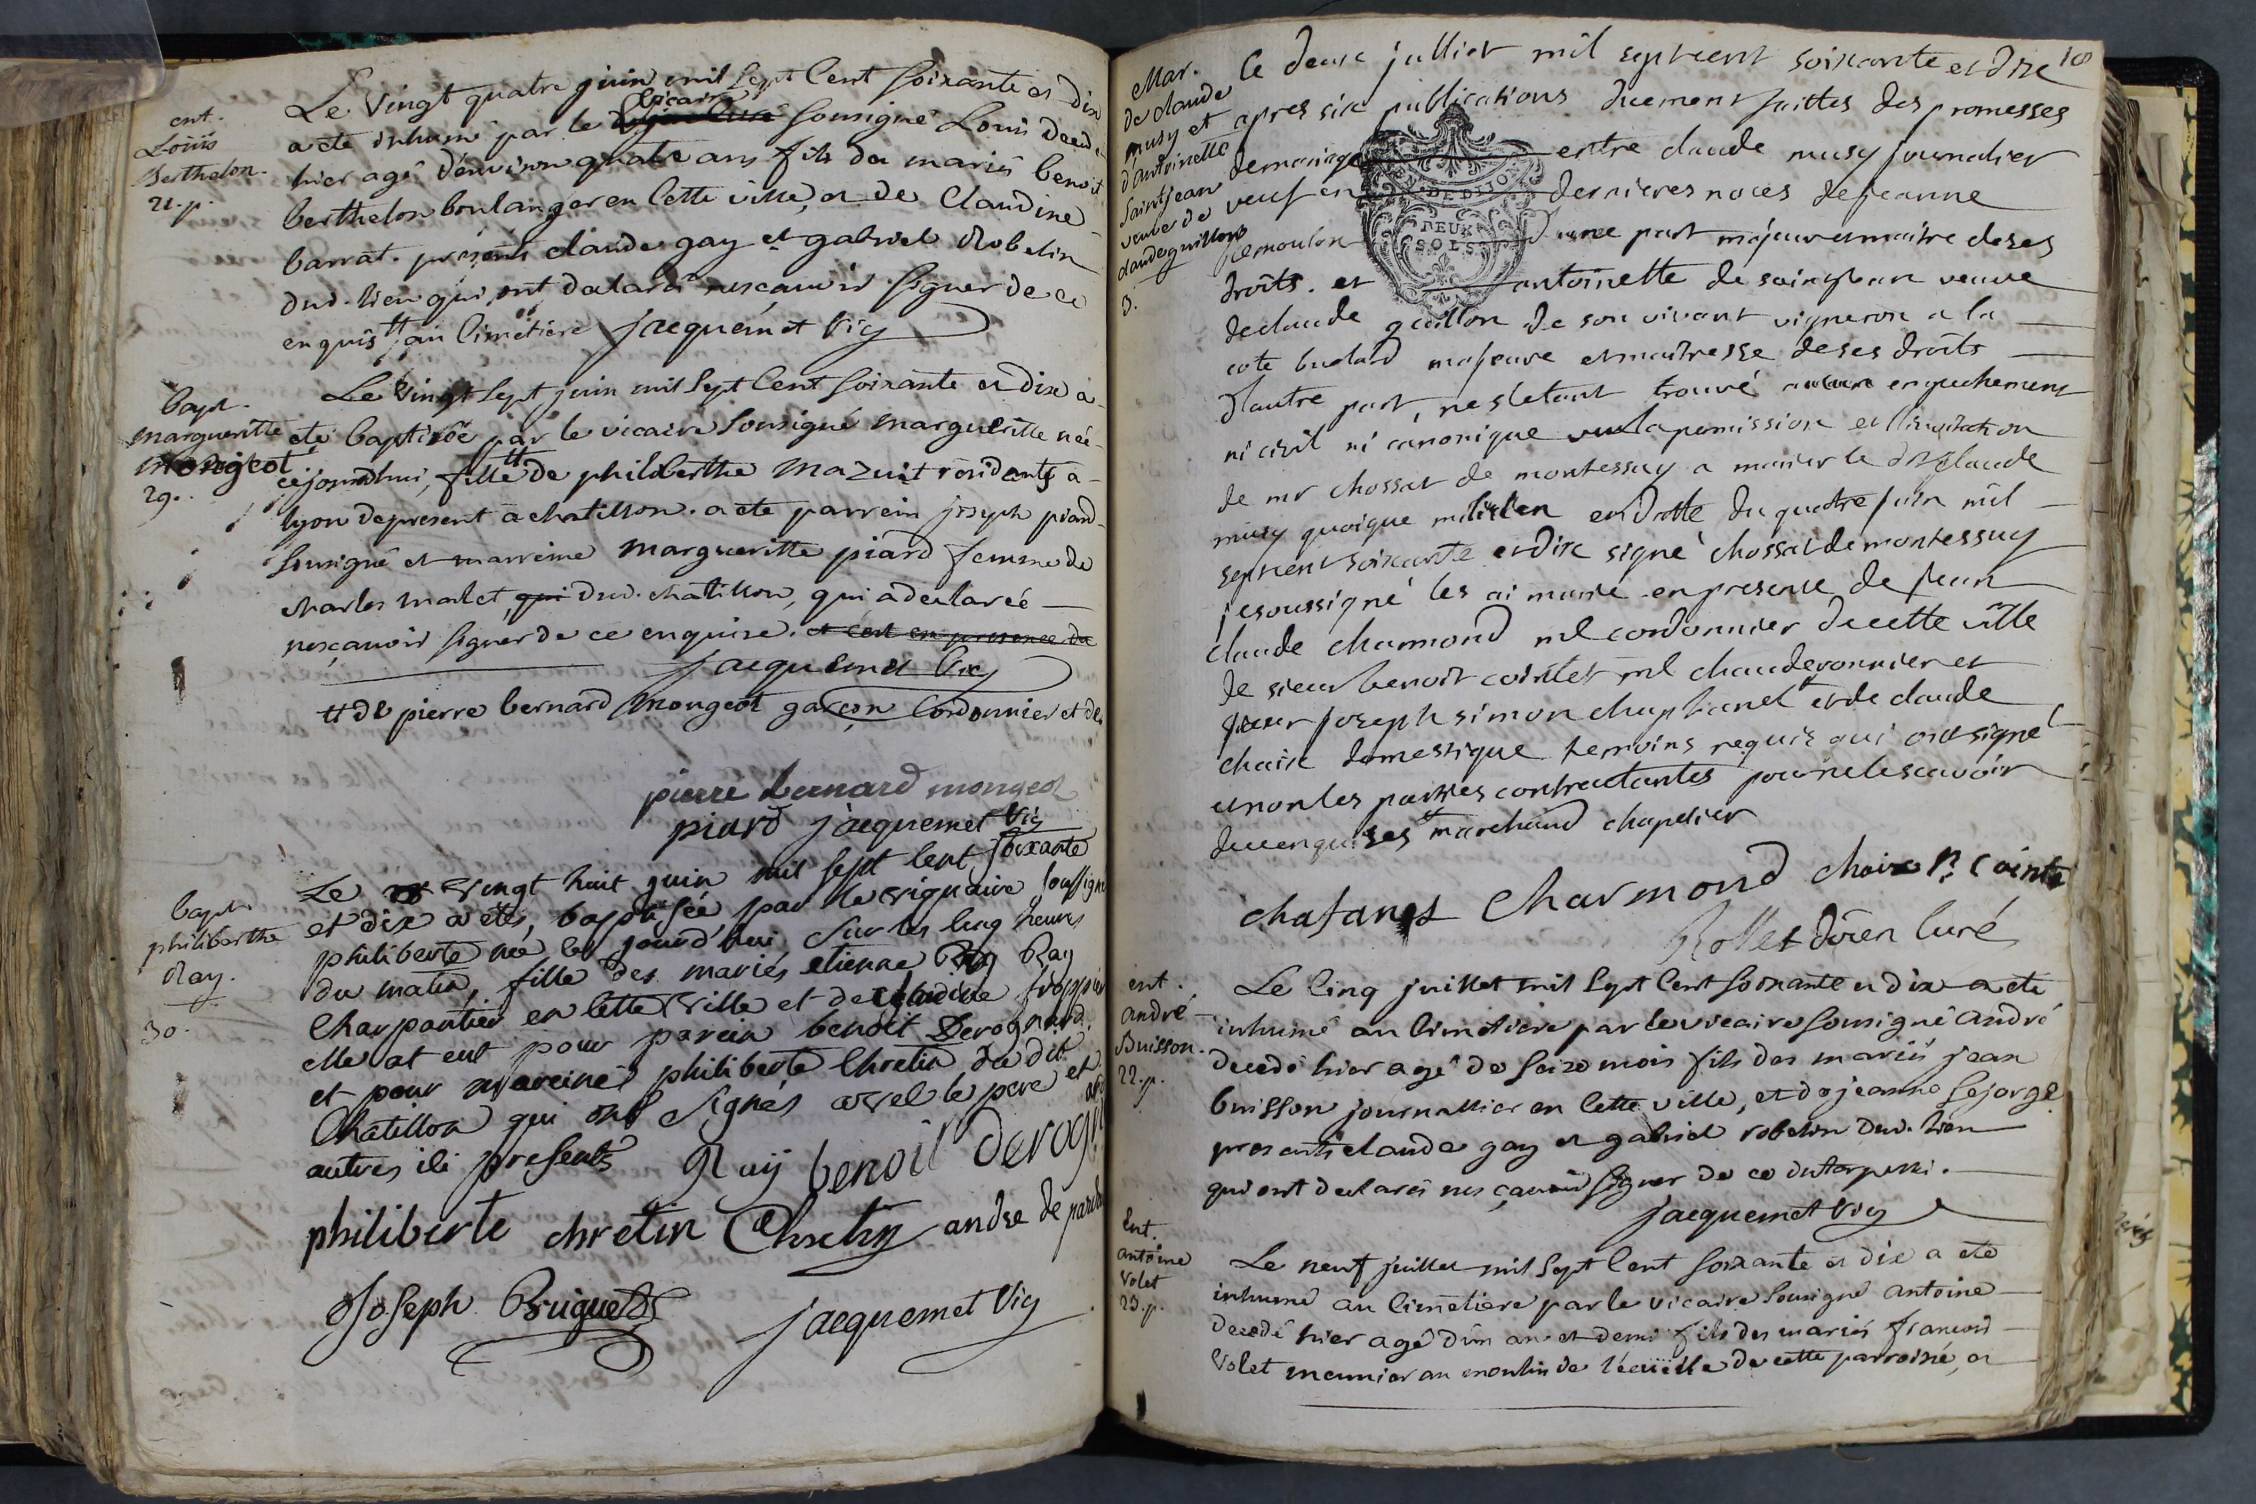 ent.
Loüis
Berthelon.
21.p.
Le vingt quatre juin mil sept cent soixante et dix
a été inhumé par le vicaire sousigné Louis decedé
hier agé denviron quatre ans fils des mariés benoit
berthelon boulanger en cette ville, et de Claudine
barrat. présents claude gay et gabriel Robelin
dud. lieu qui ont declaré ne sçavoir signer de ce
enquis tt au cimetiere jacquemet vic
bapt.
margueritte
Mongeot
29.
Le vingt sept juin mil sept cent soixante et dix a
eté baptisée par le vicaire sousigné margueritte née
cejourdhui, fille tt de philiberthe mazuit residante a
lyon depresent a chatillon. a eté parrein joseph piard
sousigné et marreine margueritte piard femme de
charles malet, qui dud. chatillon, qui a declareé
ne sçavoir signer de ce enquise. et cest en presence de
jacquemet vic
tt de pierre bernard mongeot garçon cordonnier et de
pierre bernard mongeot
piard jacquemet vic
bapt.
philiberthe
Ray.
30.
Le vingt huit juin mil sept cent soixante
et dix a etés, baptisée par le viquaire soussigné
philiberte née le jourd'hui sur les cinq heures
du matin, fille des mariés etienne Ray
charpantier en cette ville et de Claudine
elle at eut pour parein benoit Derognard
et pour mareine philiberte Chretin du dit
Chatillon qui ont signés avel le pere et
autres ici presents Ray benoit derog
philiberte chretin Chretin andre de
Joseph Bruguet
jacquemet vic
10
Mar.
de claude
musy et
d'antoinette
saintjean
veuve de
claude guillon
3.
Ce deux julliet mil septcent soixante et dix
apres six publications duement faittes des promesses
de mariage entre claude musy journalier
veuf en dernieres noces de jeanne
pemoulon d'une part majeur et maitre de ses
EN. DE DIJON
DEUX
SOLS
droits. et antoinette de saintjean veuve
de claude guillon de son vivant vigneron a la
cote budard majeure et maitresse de ses droits
d'autre part, ne s'etant trouvé aucun enpechement
ni civil ni canonique vu la permission et l'invitation
de mr chossat de montessuy a marier le dit claude
musy quoique milicien en datte du quatre juin mil
septcent soixante et dix signé chossat de montessuy
je soussigné les ai marié en presence de jean
claude charmond md cordonnier de cette ville
de sieur benoit cointet md chauderonnier et
sieur joseph simon chaphanel tt et de claude
chaix domestique temoins requis qui ont signé
et non les parties contractantes pour ne le scavoir
de ce enquises tt marchand chapelier
chafanet Charmond chaix Bt. Cointe
Rollet doïen curé
ent.
andré
Buisson.
22.p.
Le cinq juillet mil sept cent soixante et dix a eté
inhumé au cimetiere par le vicaire sousigné andré
decedé hier agé de seize mois fils des mariés jean
buisson journallier en cette ville, et de jeanne lejorge
presents claude gay et gabriel robelin dud. lieu
qui ont declarés ne sçavoir signer de ce interpellés.
jacquemet vic
Ent.
antoine
Volet
23.p.
Le neuf juillet mil sept cent soixante et dix a eté
inhumé au cimetiere par le vicaire sousigné antoine
decedé hier agé d'un an et demi fils des mariés francois
Volet meunier au moulin de l'écuïelle de cette parroisse, et